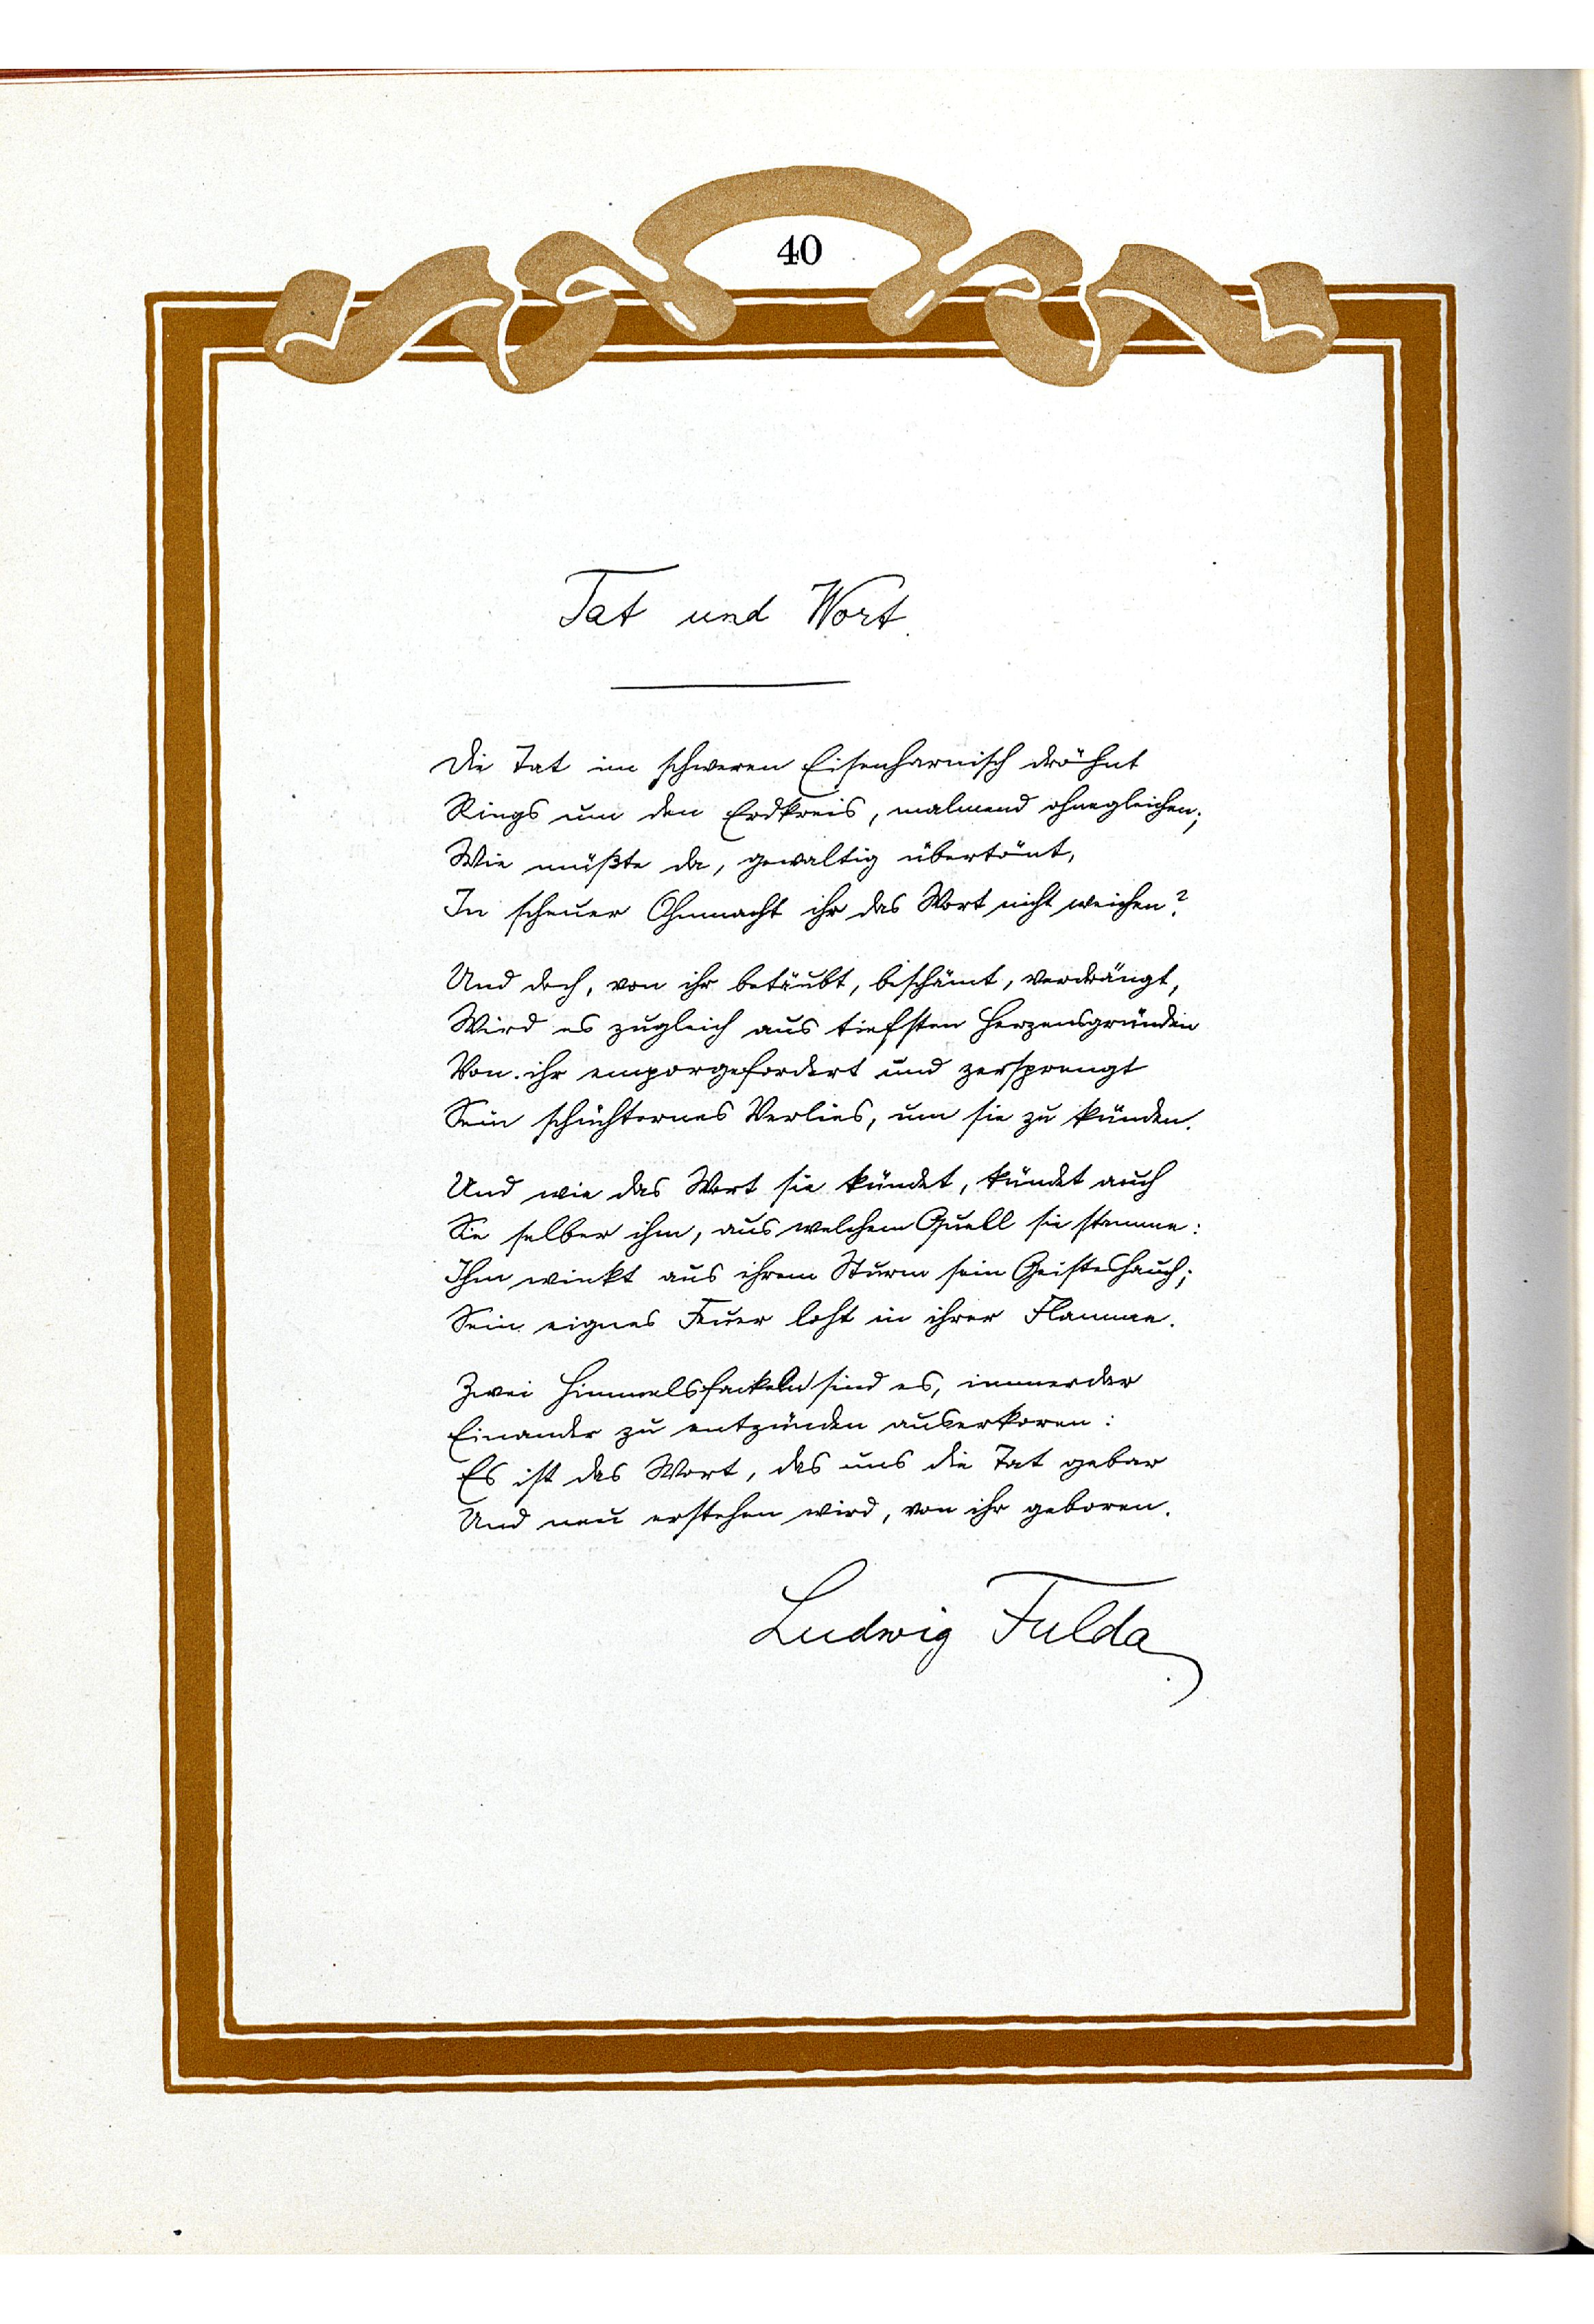 40
Tat und Wort.
Die Tat im schweren Eisenharnisch dröhnt
Rings um den Erdkreis, malmend ohnegleichen;
Wie müßte da, gewaltig übertönt,
In scheuer Ohnmacht ihr das Wort nicht weichen?
Und doch, von ihr betäubt, beschämt, verdrängt,
Wird es zugleich aus tiefsten Herzensgründen
Von ihr emporgefordert und zersprengt
Sein schüchternes Verlies, um sie zu künden.
Und wie das Wort sie kündet, kündet auch
Sie selber ihm, aus welchem Quell sie stamme:
Ihm winkt aus ihrem Sturm sein Geisteshauch;
Sein eignes Feuer loht in ihrer Flamme.
Zwei Himmelsfackeln sind es, immerdar
Einander zu entzünden auserkoren:
Es ist das Wort, das uns die Tat gebar
Und neu erstehen wird, von ihr geboren.
Ludwig Fulda